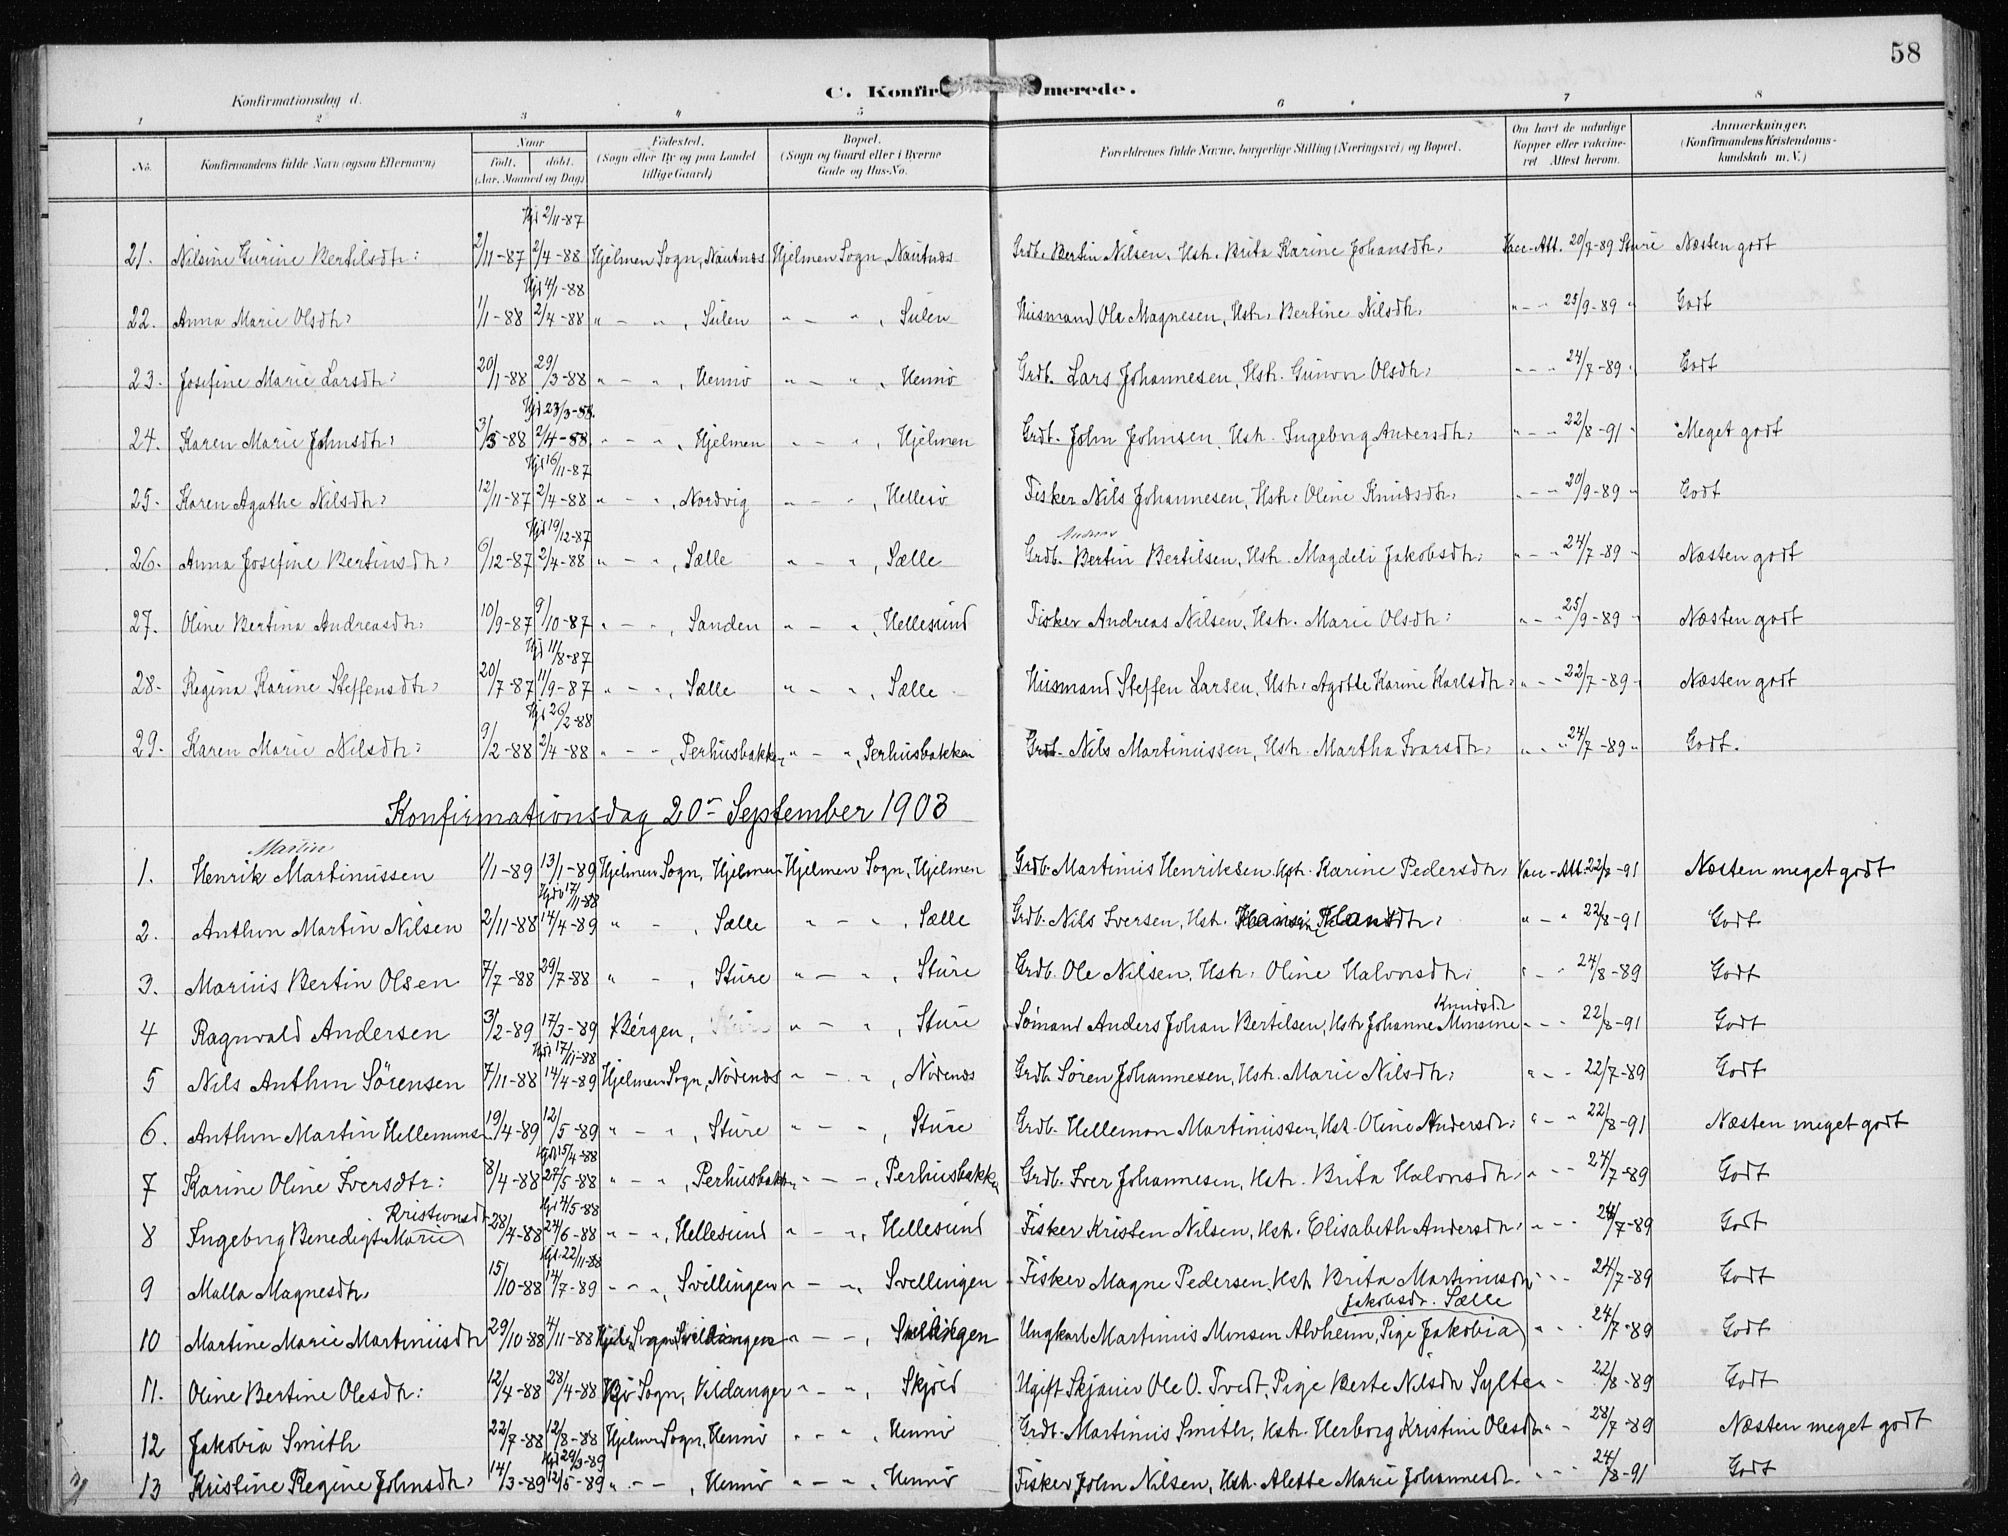 58
C. Konfirmerede.
Konfirmationsdag d.
1 2 3 4 5 6 7 8
No. Konfirmandens fulde Navn (ogsaa Efternavn) Naar født. døbt. (Aar, Maaned og Dag) Fødested. (Sogn eller By og paa Landet tillige Gaard) Bopæl. (Sogn og Gaard eller i Byerne Gade og Hus-No. Forældrenes fulde Navne, borgerlige Stilling (Næringsvei) og Bopæl. Om havt de naturlige Kopper eller vakcineret Attest herom. Anmærkninger. (Konfirmandens Kristendomskundskab m. V.)
Hjd 2/11-87
21. Nilsine Gurine Bertilsdtr: 2/11-87 2/4-88 Hjelmen Sogn, Nautnæs Hjelmen Sogn, Nautnæs Grdb. Bertin Nilsen, Hstr. Brita Karine Johansdtr: Vac-Att. 20/7-89 Sture Næsten godt
Hjd 4/1-88
22. Anna Marie Olsdtr: 1/1-88 2/4-88 " - ", Sulen " - ", Sulen Husmand Ole Magnesen, Hstr. Bertine Nilsdtr: " - " 25/9-89 " Godt
23. Josefine Marie Larsdtr: 20/1-88 29/3-88 " - ", Hennø " - ", Hennø Grdb. Lars Johannesen, Hstr. Gunvor Olsdtr: " - " 24/7-89 " Godt
Hjd 23/3-88.
24. Karen Marie Johnsdtr: 3/3-88 2/4-88 " - ", Hjelmen " - ", Hjelmen Grdb. John Johnsen, Hstr. Ingeborg Andersdtr: " - " 22/8-91 " Meget godt
Hjd 16/11-87
25. Karen Agathe Nilsdtr: 12/11-87 2/4-88 " - ", Nordvig " - ", Hellesø Fisker Nils Johannesen, Hstr. Oline Knudsdtr: " - " 20/9-89 " Godt
Hjd 19/12-87
26. Anna Josefine Bertinsdtr: 9/12-87 2/4-88 " - ", Sælle " - ", Sælle Grdb. Bertin Bertilsen, Hstr. Magdeli Jakobsdtr: " - " 24/7-89 " Næsten godt
27. Oline Bertina Andreasdtr: 10/9-87 9/10-87 " - ", Sanden " - ", Hellesund Fisker Andreas Nilsen, Hstr. Marie Olsdtr: " - " 25/9-89 " Næsten godt
Hjd 11/8-87
28. Regina Karine Steffensdtr: 20/7-87 11/9-87 " - ", Sælle " - ", Sælle Husmand Steffen Larsen, Hstr. Agotte Karine Karlsdtr: " - " 22/7-89 " Næsten godt
Hjd 26/2-88
29. Karen Marie Nilsdtr: 9/2-88 2/4-88 " - ", Perhusbakken " - ", Perhusbakken Grdb. Nils Martinussen, Hstr. Martha Ivarsdtr: " - " 24/7-89 " Godt.
Konfirmationsdag 20de September 1903
Martin
1. Henrik Martinussen 1/1-89 13/1-89 Hjelmen Sogn, Hjelmen Hjelmen Sogn, Hjelmen Grdb. Martinus Henriksen, Hstr. Karine Pedersdtr: Vac-Att. 22/8-91 Næsten meget godt
Hjd 17/11-88
2. Anthon Martin Nilsen 2/11-88 14/4-89 " - , Sælle " - ", Sælle Grdb. Nils Iversen, Hstr. " - " 22/8-91 Godt
3. Marius Bertin Olsen 7/7-88 29/7-88 " - , Sture " - ", Sture Grdb. Ole Nilsen, Hstr. Oline Halvorsdtr: " - " 24/8-89 Godt
Knudsdtr
4 Ragnvald Andersen 3/2-89 17/3-89 Bergen, " - ", Sture Sømand Anders Johan Bertilsen, Hstr Johanne Monsine " - " 22/8-91 Godt
Hjd 17/11-88
5 Nils Anthon Sørensen 7/11-88 14/4-89 Hjelmen Sogn, Nodenæs " - ", Nodenæs Grdb. Søren Johannesen, Hstr. Marie Nilsdtr: " - " 22/7-89 Godt
6. Anthon Martin Hellemonsen 19/4-89 12/5-89 " - ", Sture " - ", Sture Grdb. Hellemon Martinussen, Hstr. Oline Andersdtr: " - " 22/8-91 Næsten meget godt
Hjd 15/4-88
7 Karine Oline Iversdtr: 8/4-88 27/5-88 " - ", Perhusbakken " - ", Perhusbakken Grdb. Iver Johannesen, Hstr. Brita Halvorsdtr: " - " 24/7-89 Godt
Kristensdtr Hjd 4/5-88
8 Ingeborg Benedigte Marie 28/4-88 24/6-88 " - ", Hellesund " - ", Hellesund Fisker Kristen Nilsen, Hstr. Elisabeth Andersdtr: " - " 24/7-89 Godt
Hjd. 22/11-88
9 Malla Magnesdtr: 15/10-88 14/7-89 " - ", Svillingen " - ", Svellingen Fisker Magne Pedersen, Hstr. Brita Martinusdtr " - " 24/7-89 Godt
Jakobsdr. Sælle
10 Martine Marie Martinusdtr 29/10-88 4/11-88 Hjel. Sogn, Svillingen " - ", Svellingen Ungkarl Martinus Monsen Alvheim, Pige Jakobia " - " 24/7-89 Godt
11. Oline Bertine Olesdtr: 12/4-88 28/4-88 Sogn, Vildanger " - ", Skjold Ugift Skjauer Ole O. Tvedt, Pige Berte Nilsdtr Sylte " - 22/8-89 Godt
12 Jakobia Smith 22/7-88 12/8-88 Hjelmen Sogn, Hennø " - ", Hennø Grdb. Martinus Smith, Hstr. Herborg Kristine Olesdtr " - 28/7-89 Næsten meget godt
Hjd 29/3-89
13 Kristine Regine Johnsdtr: 14/3-89 12/5-89 " - - , Hennø " - ", Hennø Fisker John Nilsen, Hstr. Alette Marie Johannesdtr. " - " 24/8-91 Godt